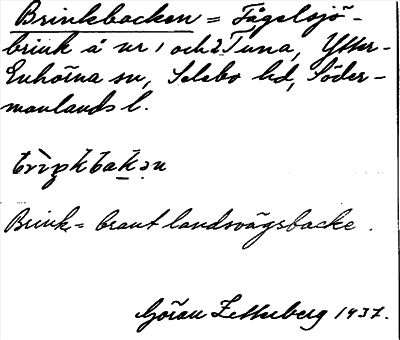 Brinkbacken = Fågelsjö-
brink å nr 1 och 2 Tuna, Ytter-
Enhörna sn, Selebo hd, Söder-
manlands l.
Brink = brant landsvägsbacke.
Göran Zetterberg 1937.